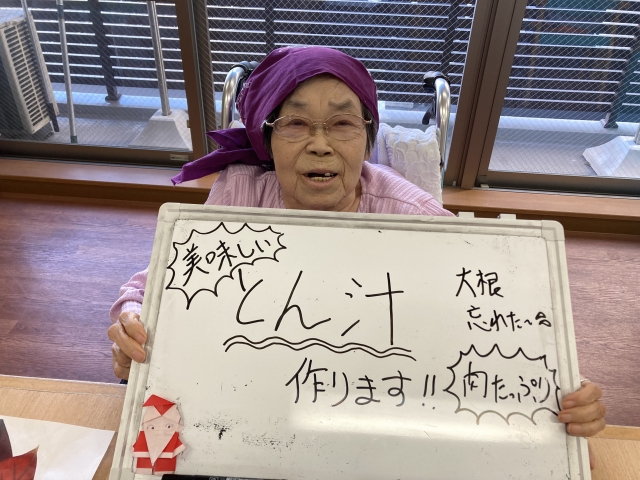 美味しい
とん汁
大根
忘れた〜
作ります!!
肉たっぷり